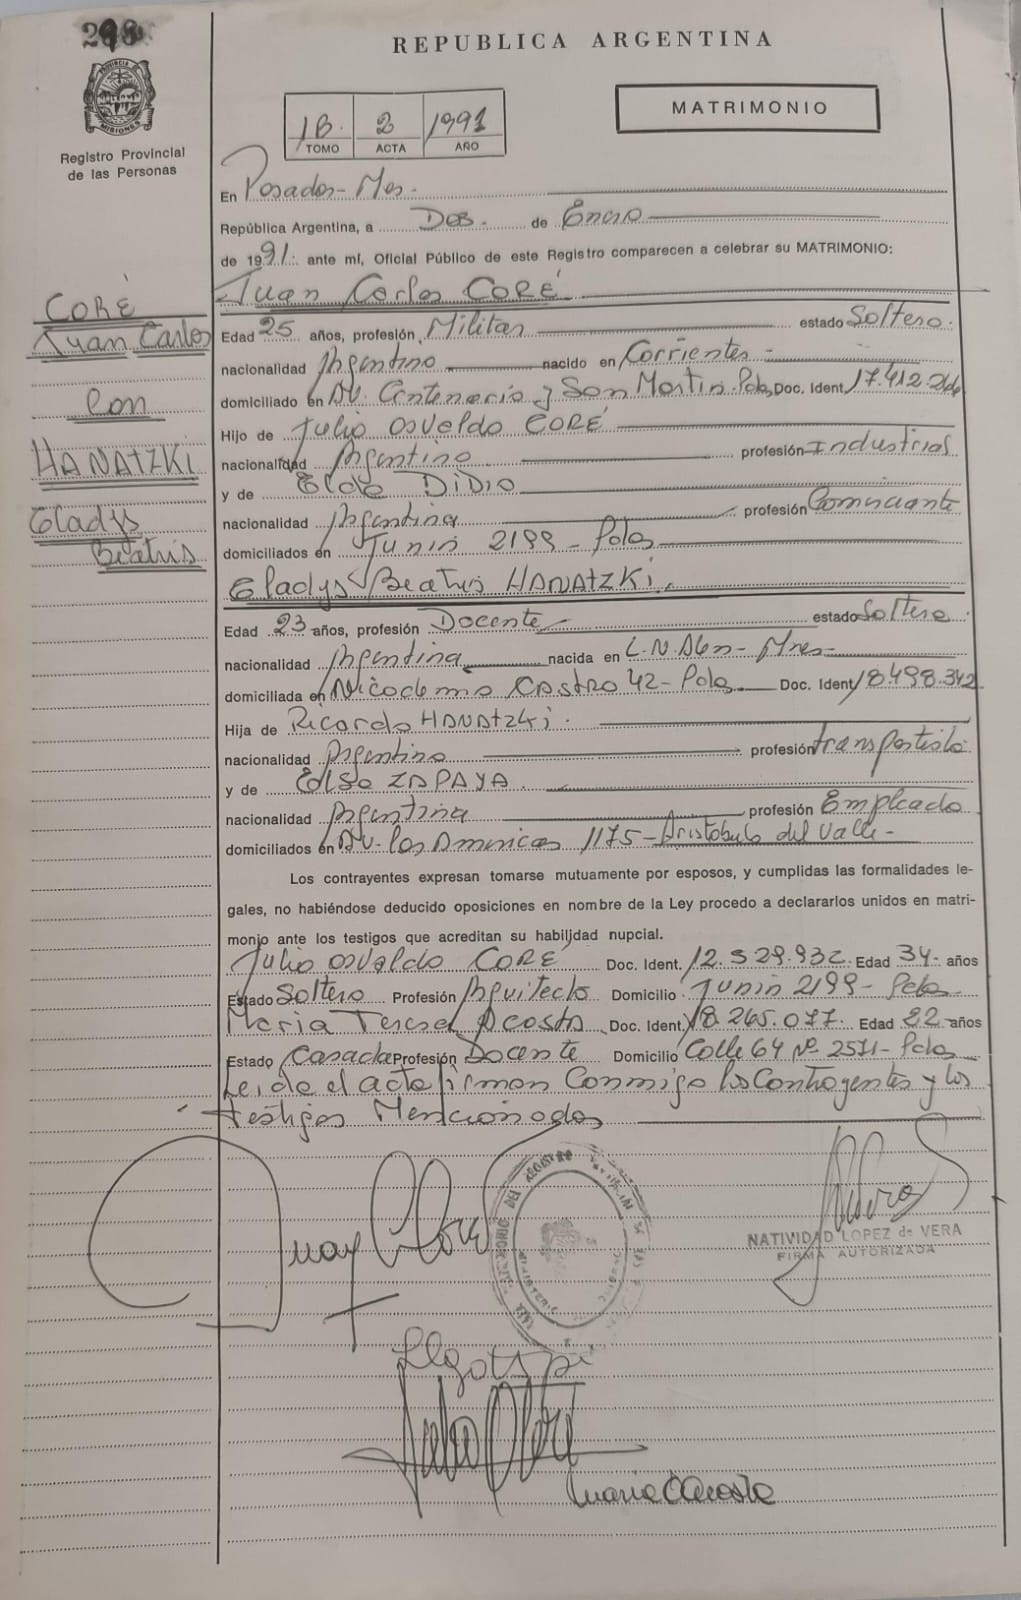 298
REPUBLICA ARGENTINA
MATRIMONIO
1B. 2 1991
TOMO ACTA AÑO
Registro Provincial
de las Personas
En Posadas-Mnes.
República Argentina, a Dos. de Enero
de 1991. ante mí, Oficial Público de este Registro comparecen a celebrar su MATRIMONIO:
CORÉ
Juan Carlos
Con
HANATZKI
Gladys
Beatris
Juan Carlos CORÉ
Edad 25 años, profesión Militar estado Soltero.
nacionalidad Argentino nacido en Corrientes
domiciliado en AV. Centenario y San Martin-Pdas Doc. Ident. 17.412.266
Hijo de Julio Osvaldo CORÉ
nacionalidad Argentino profesión Industrial
y de Elda DIDIO
nacionalidad Argentina profesión Comerciante
domiciliados en Junin 2199-Pdas
Gladys Beatris HANATZKI.
Edad 23 años, profesión Docente estado Soltera
nacionalidad Argentina nacida en L.N.Alem-Mnes-
domiciliada en Nicodemo Castro 42-Pdas Doc. Ident. 18.498.342
Hija de Ricardo HANATZKI.
nacionalidad Argentino profesión transportista
y de Elsa ZAPAYA
nacionalidad Argentina profesión Empleada
domiciliados en AV. las Americas 1175-Aristobulo del Valle-
Los contrayentes expresan tomarse mutuamente por esposos, y cumplidas las formalidades le-
gales, no habiéndose deducido oposiciones en nombre de la Ley procedo a declararlos unidos en matri-
monio ante los testigos que acreditan su habilidad nupcial.
Julio Osvaldo CORÉ Doc. Ident. 12.529.932 Edad 34 años
Estado Soltero Profesión Arquitecto Domicilio Junin 2199-Pdas
Maria Teresa Acosta Doc. Ident. 18.265.077. Edad 22 años
Estado Casada Profesión Docente Domicilio Calle 64 Nº 2571-Pdas
Leida el acta firman Conmigo los Contrayentes y los
testigos Mencionados
NATIVIDAD LOPEZ de VERA
FIRMA AUTORIZADA
Maria T Acosta